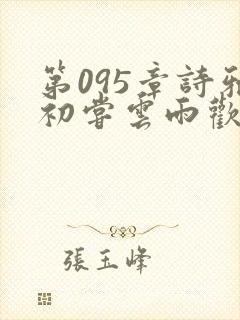 第095章詩雅
初嘗雲雨歡
張玉峰